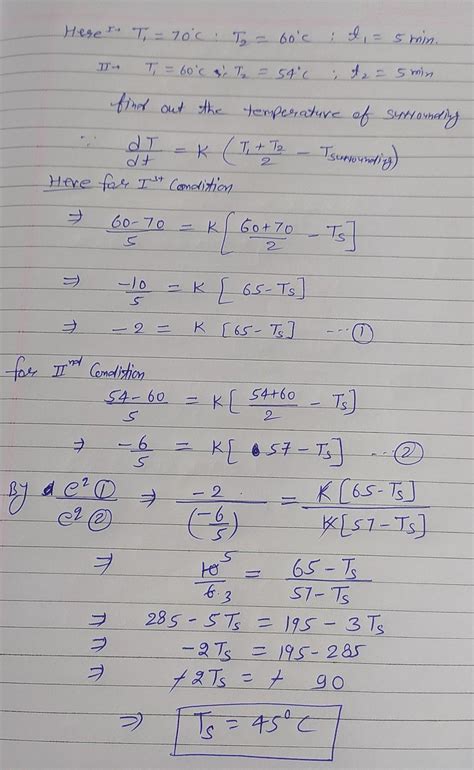 Here I→ T₁ = 70°C ; T₂ = 60°C ; t₁ = 5 min.
II→ T₁ = 60°C ; T₂ = 54°C ; t₂ = 5 min
find out the temperature of surrounding
∵ dT/dt = K (T₁ + T₂/2 − Tsurrounding)
Here for Iˢᵗ Condition
⇒ 60-70/5 = K[60+70/2 − Ts]
⇒ -10/5 = K [65-Ts]
⇒ -2 = K [65-Ts] ---①
for IIⁿᵈ Condition
54-60/5 = K[54+60/2 − Ts]
⇒ -6/5 = K[57-Ts] ---②
By e² ①/e² ② ⇒ -2/(-6/5) = K[65-Ts]/K[57-Ts]
⇒ 10 5/6 3 = 65-Ts/57-Ts
⇒ 285-5Ts = 195-3Ts
⇒ -2Ts = 195-285
⇒ -2Ts = - 90
⇒ Ts = 45°C